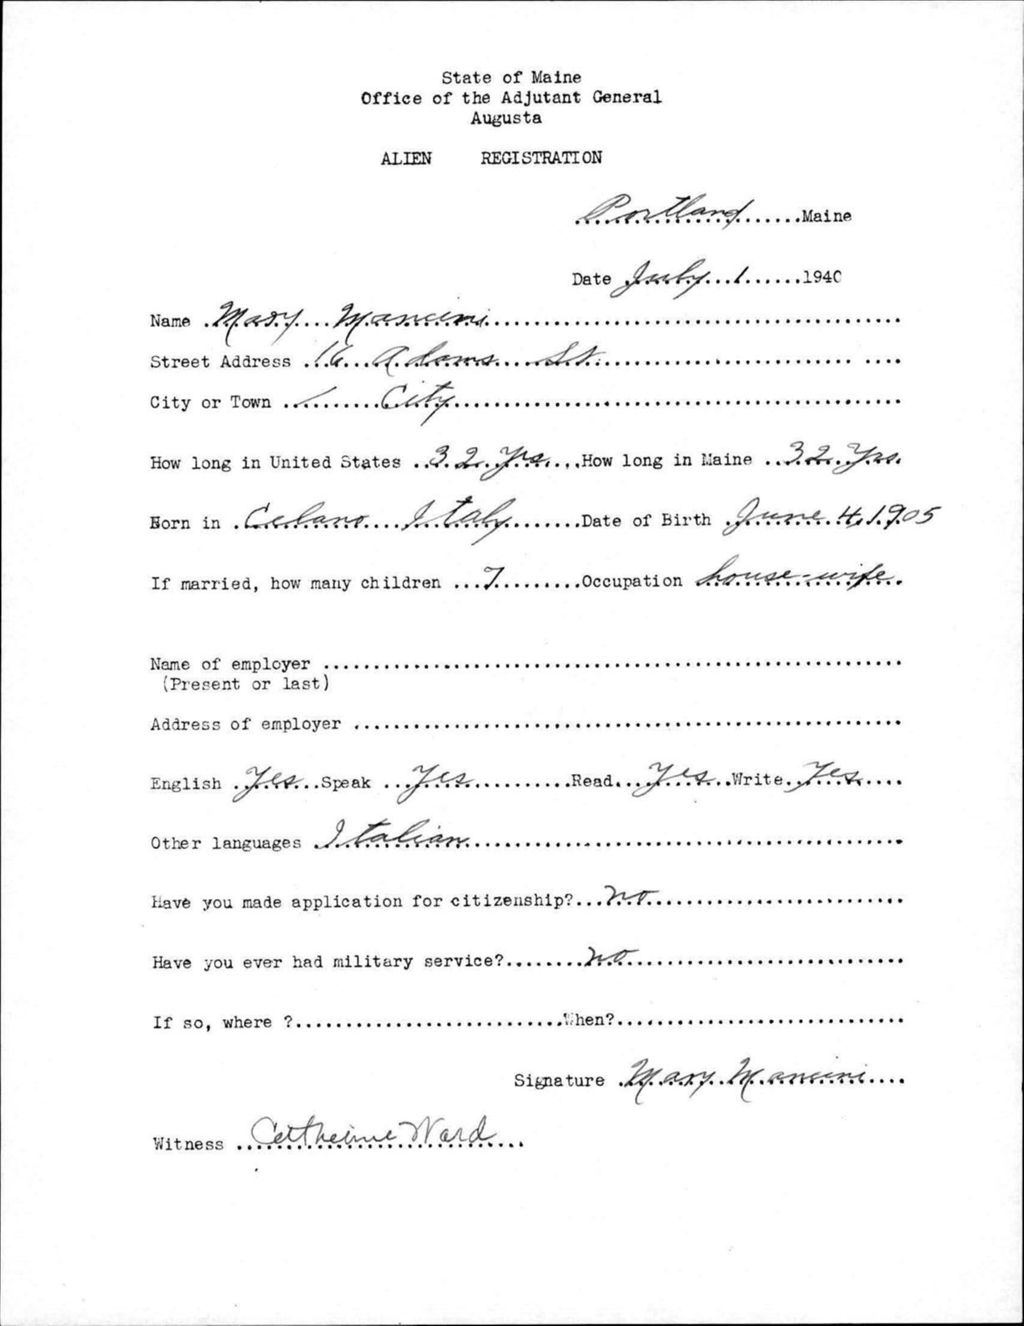 State of Maine
Office of the Adjutant General
Augusta
ALIEN REGISTRATION
Portland Maine
Date July 1 1940
Name Mary Mancini
Street Address 16 Adams St.
City or Town City
How long in United States 32 Yrs. How long in Maine 32 Yrs.
Born in Celano Italy Date of Birth June 4, 1905
If married, how many children 7 Occupation house-wife
Name of employer
(Present or last)
Address of employer
English Yes Speak Yes Read Yes Write Yes
Other languages Italian
Have you made application for citizenship? no
Have you ever had military service? no
If so, where ? When?
Signature Mary Mancini
Witness Ward